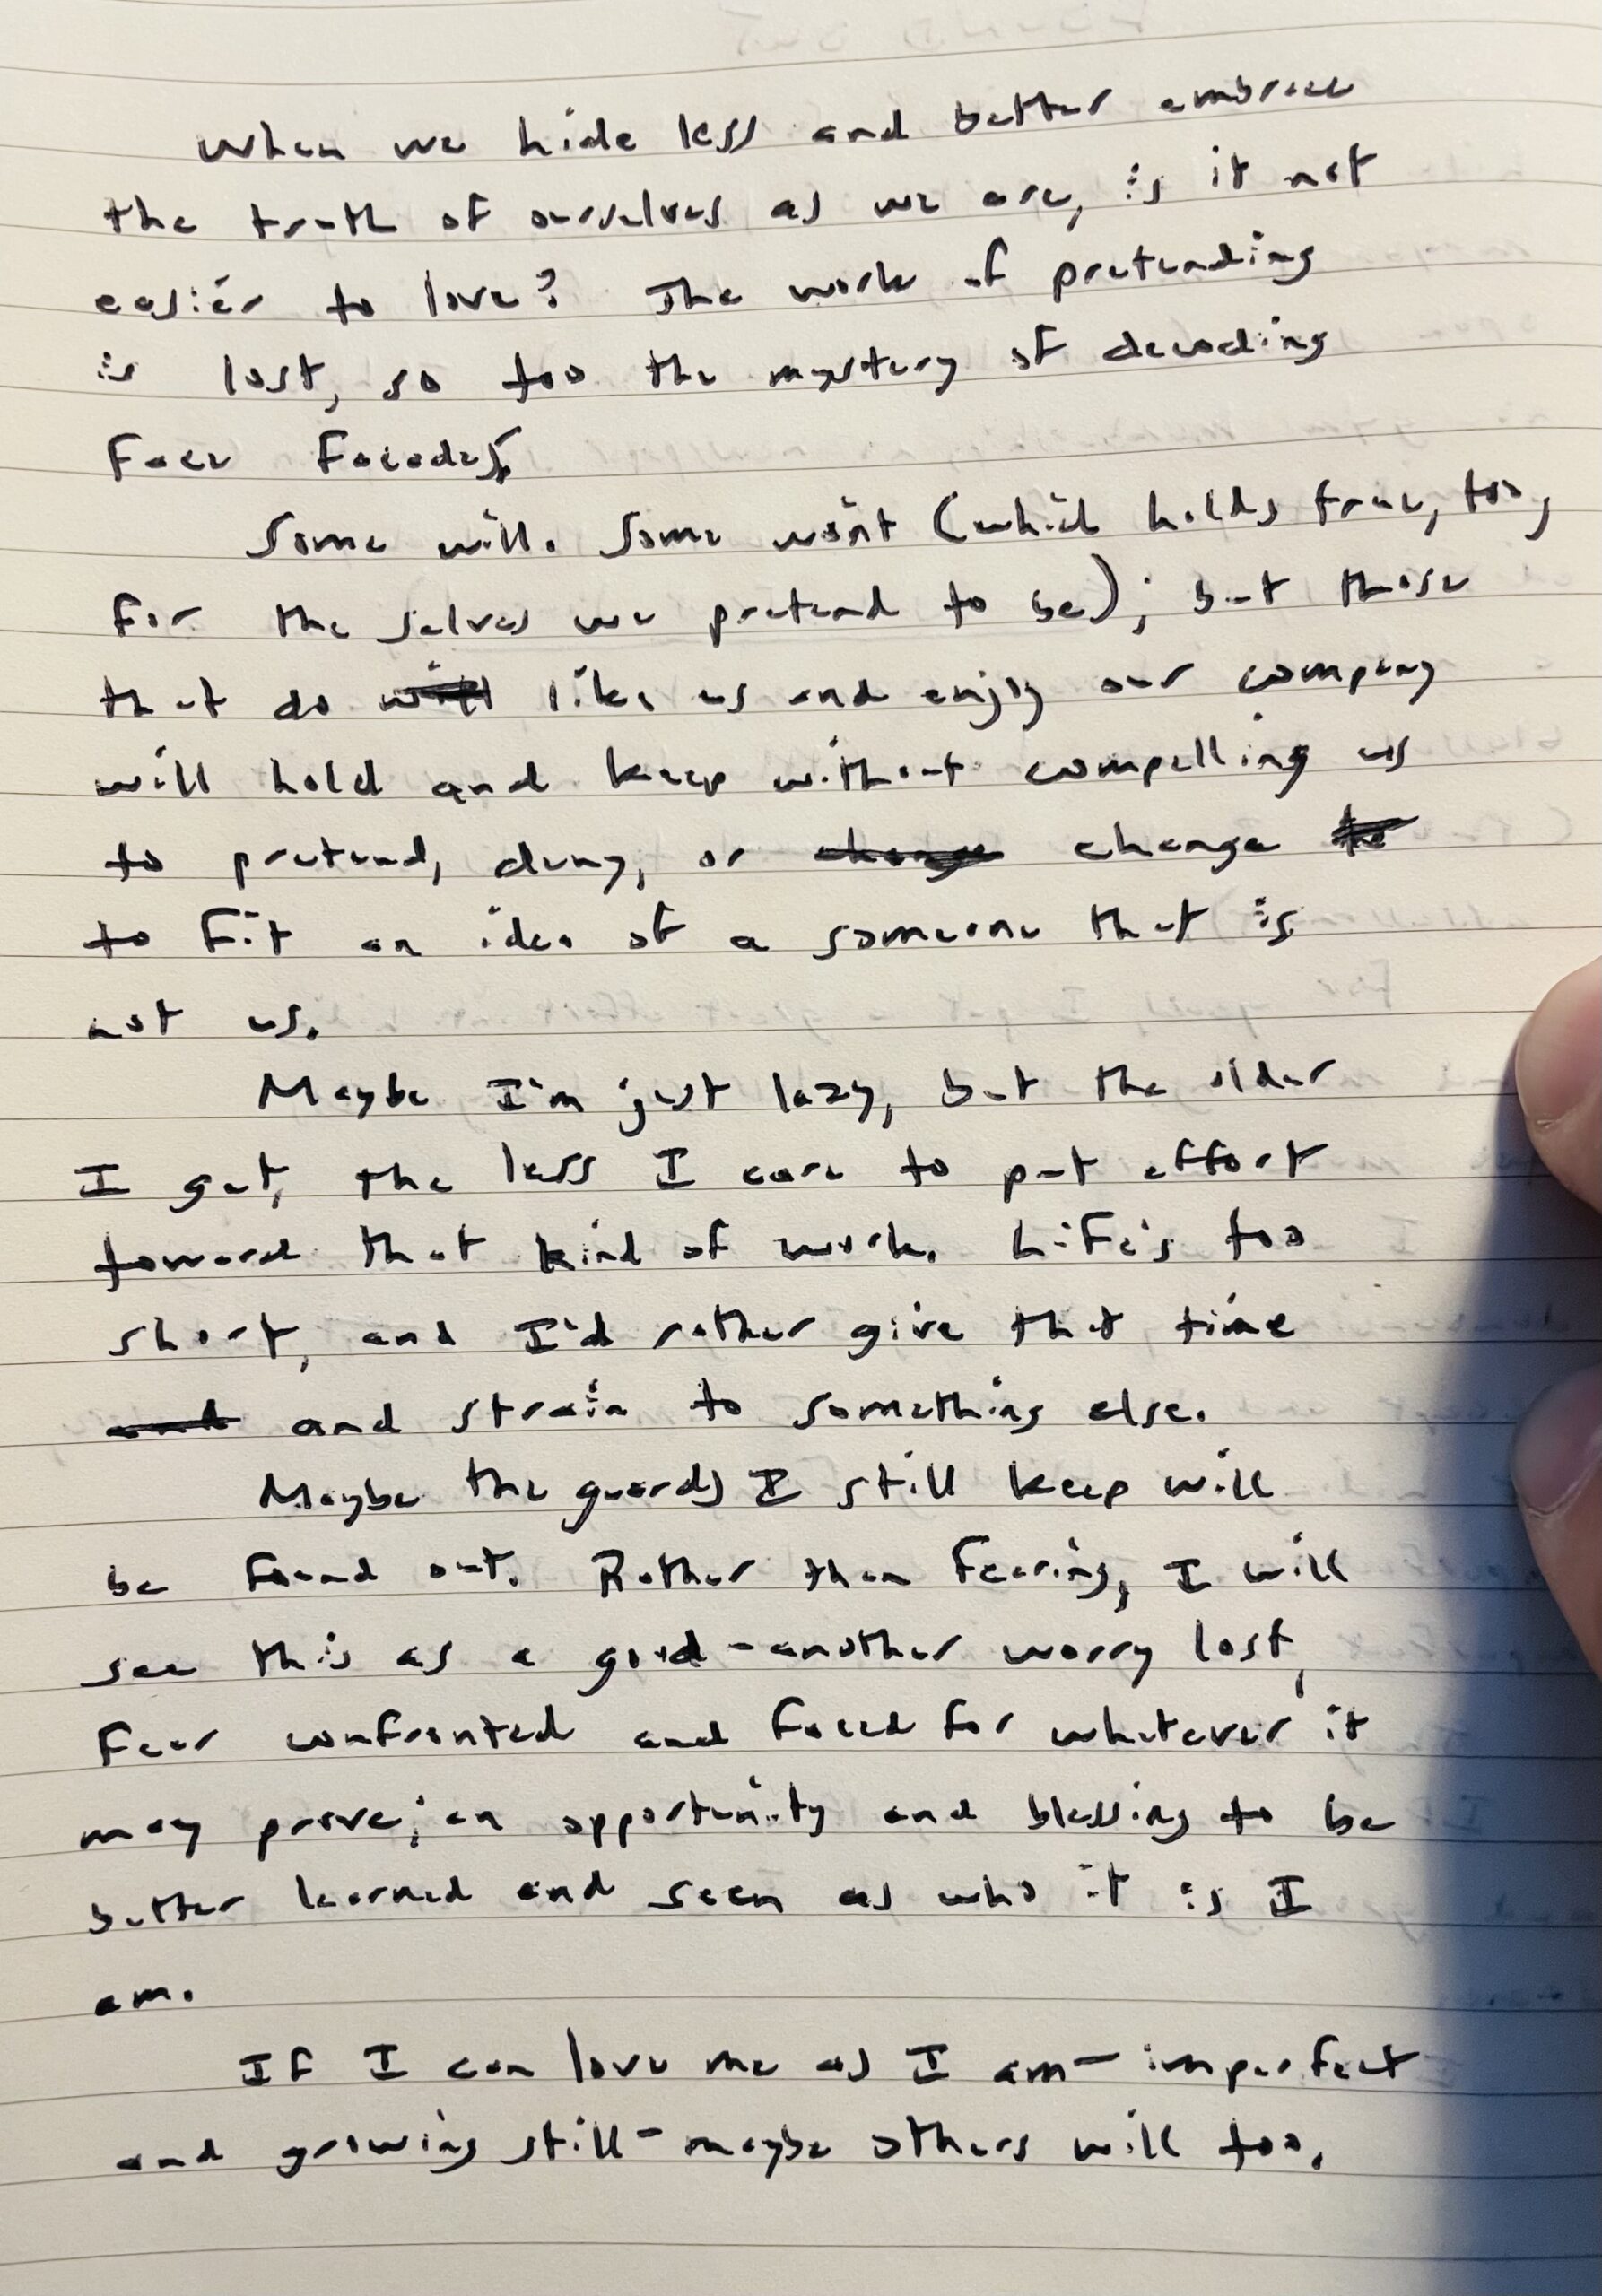 When we hide less and better embrace
the truth of ourselves as we are, is it not
easier to love? The work of pretending
is lost, so too the mystery of decoding
faux facades.
Some will. Some won't (which holds true, too,
for the selves we pretend to be); but those
that do will like us and enjoy our company
will hold and keep without compelling us
to pretend, deny, or change change to
to fit an idea of a someone that is
not us.
Maybe I'm just lazy, but the older
I get, the less I care to put effort
toward that kind of work. Life's too
short, and I'd rather give that time
and and strain to something else.
Maybe the guards I still keep will
be found out. Rather than fearing, I will
see this as a good - another worry lost,
fear confronted and faced for whatever it
may prove; an opportunity and blessing to be
better learned and seen as who it is I
am.
If I can love me as I am - imperfect
and growing still - maybe others will too.